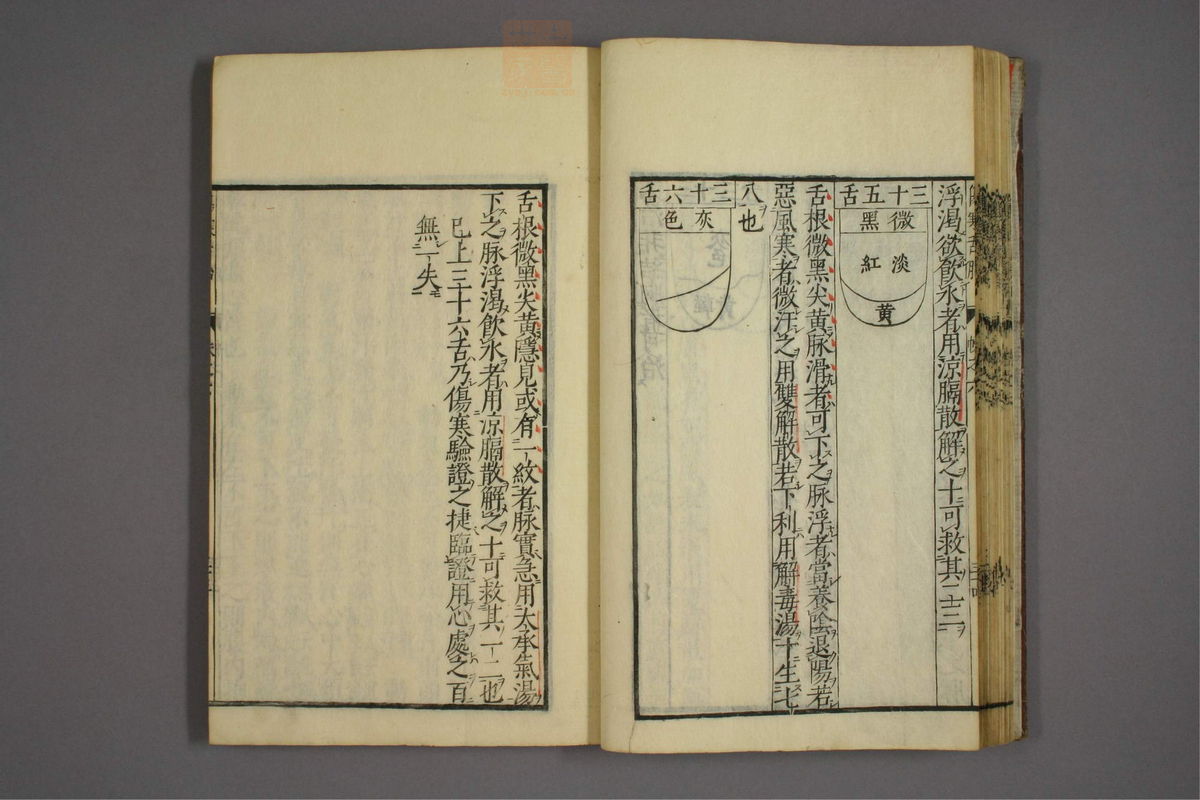 浮渴欲飲水者用涼膈散解之十可救其二三
三十五舌
微黑
淡紅
黃
舌根微黑尖黃脉滑者可下之脉浮者當養陰退陽若
惡風寒者微汗之用雙解散若下利用解毒湯十生七
八也
三十六舌
灰色
舌根微黑尖黃隱見或有一紋者脉實急用大承氣湯
下之脉浮渴飲水者用涼膈散解之十可救其一二也
已上三十六舌乃傷寒驗證之捷臨證用心處之百
無一失